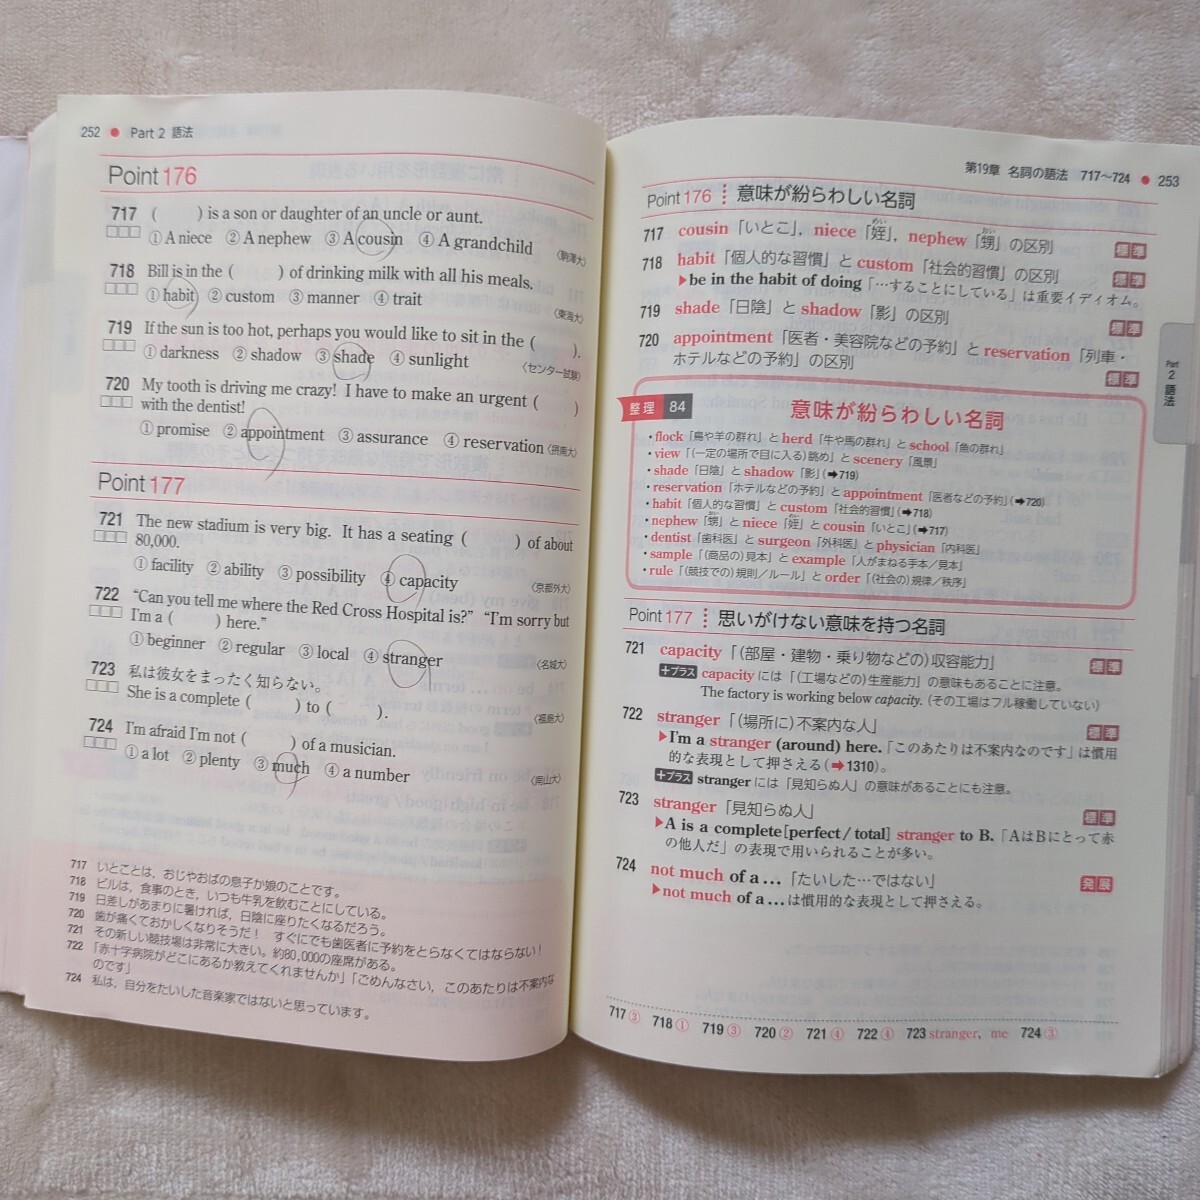 252 ● Part 2 語法
Point 176
717 (　　) is a son or daughter of an uncle or aunt.
① A niece ② A nephew ③ A cousin ④ A grandchild 〈駒澤大〉
718 Bill is in the (　　) of drinking milk with all his meals.
① habit ② custom ③ manner ④ trait 〈東海大〉
719 If the sun is too hot, perhaps you would like to sit in the (　　).
① darkness ② shadow ③ shade ④ sunlight 〈センター試験〉
720 My tooth is driving me crazy! I have to make an urgent (　　)
with the dentist!
① promise ② appointment ③ assurance ④ reservation 〈摂南大〉
Point 177
721 The new stadium is very big. It has a seating (　　) of about
80,000.
① facility ② ability ③ possibility ④ capacity 〈京都外大〉
722 “Can you tell me where the Red Cross Hospital is?” “I'm sorry but
I'm a (　　) here.”
① beginner ② regular ③ local ④ stranger 〈名城大〉
723 私は彼女をまったく知らない。
She is a complete (　　) to (　　). 〈福島大〉
724 I'm afraid I'm not (　　) of a musician.
① a lot ② plenty ③ much ④ a number 〈岡山大〉
717 いとことは、おじやおばの息子か娘のことです。
718 ビルは、食事のとき、いつも牛乳を飲むことにしている。
719 日差しがあまりに暑ければ、日陰に座りたくなるだろう。
720 歯が痛くておかしくなりそうだ！ すぐにでも歯医者に予約をとらなくてはならない！
721 その新しい競技場は非常に大きい。約80,000の座席がある。
722 「赤十字病院がどこにあるか教えてくれませんか」「ごめんなさい、このあたりは不案内な
のです」
724 私は、自分をたいした音楽家ではないと思っています。
第19章 名詞の語法 717～724 ● 253
Point 176 意味が紛らわしい名詞
717 cousin「いとこ」, niece「姪」, nephew「甥」の区別 標準
めい
おい
718 habit「個人的な習慣」と custom「社会的習慣」の区別 標準
▶be in the habit of doing「…することにしている」は重要イディオム。
719 shade「日陰」と shadow「影」の区別 標準
720 appointment「医者・美容院などの予約」と reservation「列車・
ホテルなどの予約」の区別 標準
整理 84 意味が紛らわしい名詞
・flock「鳥や羊の群れ」と herd「牛や馬の群れ」と school「魚の群れ」
・view「(一定の場所で目に入る)眺め」と scenery「風景」
・shade「日陰」と shadow「影」(➡719)
・reservation「ホテルなどの予約」と appointment「医者などの予約」(➡720)
・habit「個人的な習慣」と custom「社会的習慣」(➡718)
・nephew「甥」と niece「姪」と cousin「いとこ」(➡717)
おい
めい
・dentist「歯科医」と surgeon「外科医」と physician「内科医」
・sample「(商品の)見本」と example「人がまねる手本／見本」
・rule「(競技での)規則／ルール」と order「(社会の)規律／秩序」
Point 177 思いがけない意味を持つ名詞
721 capacity「(部屋・建物・乗り物などの)収容能力」 標準
＋プラス capacity には「(工場などの)生産能力」の意味もあることに注意。
The factory is working below capacity. (その工場はフル稼働していない)
722 stranger「(場所に)不案内な人」 標準
▶I'm a stranger (around) here.「このあたりは不案内なのです」は慣用
的な表現として押さえる(➡1310)。
＋プラス stranger には「見知らぬ人」の意味があることにも注意。
723 stranger「見知らぬ人」 標準
▶A is a complete[perfect / total] stranger to B.「AはBにとって赤
の他人だ」の表現で用いられることが多い。
724 not much of a ...「たいした…ではない」 発展
▶not much of a ... は慣用的な表現として押さえる。
717 ③ 718 ① 719 ③ 720 ② 721 ④ 722 ④ 723 stranger, me 724 ③
Part
2
語法